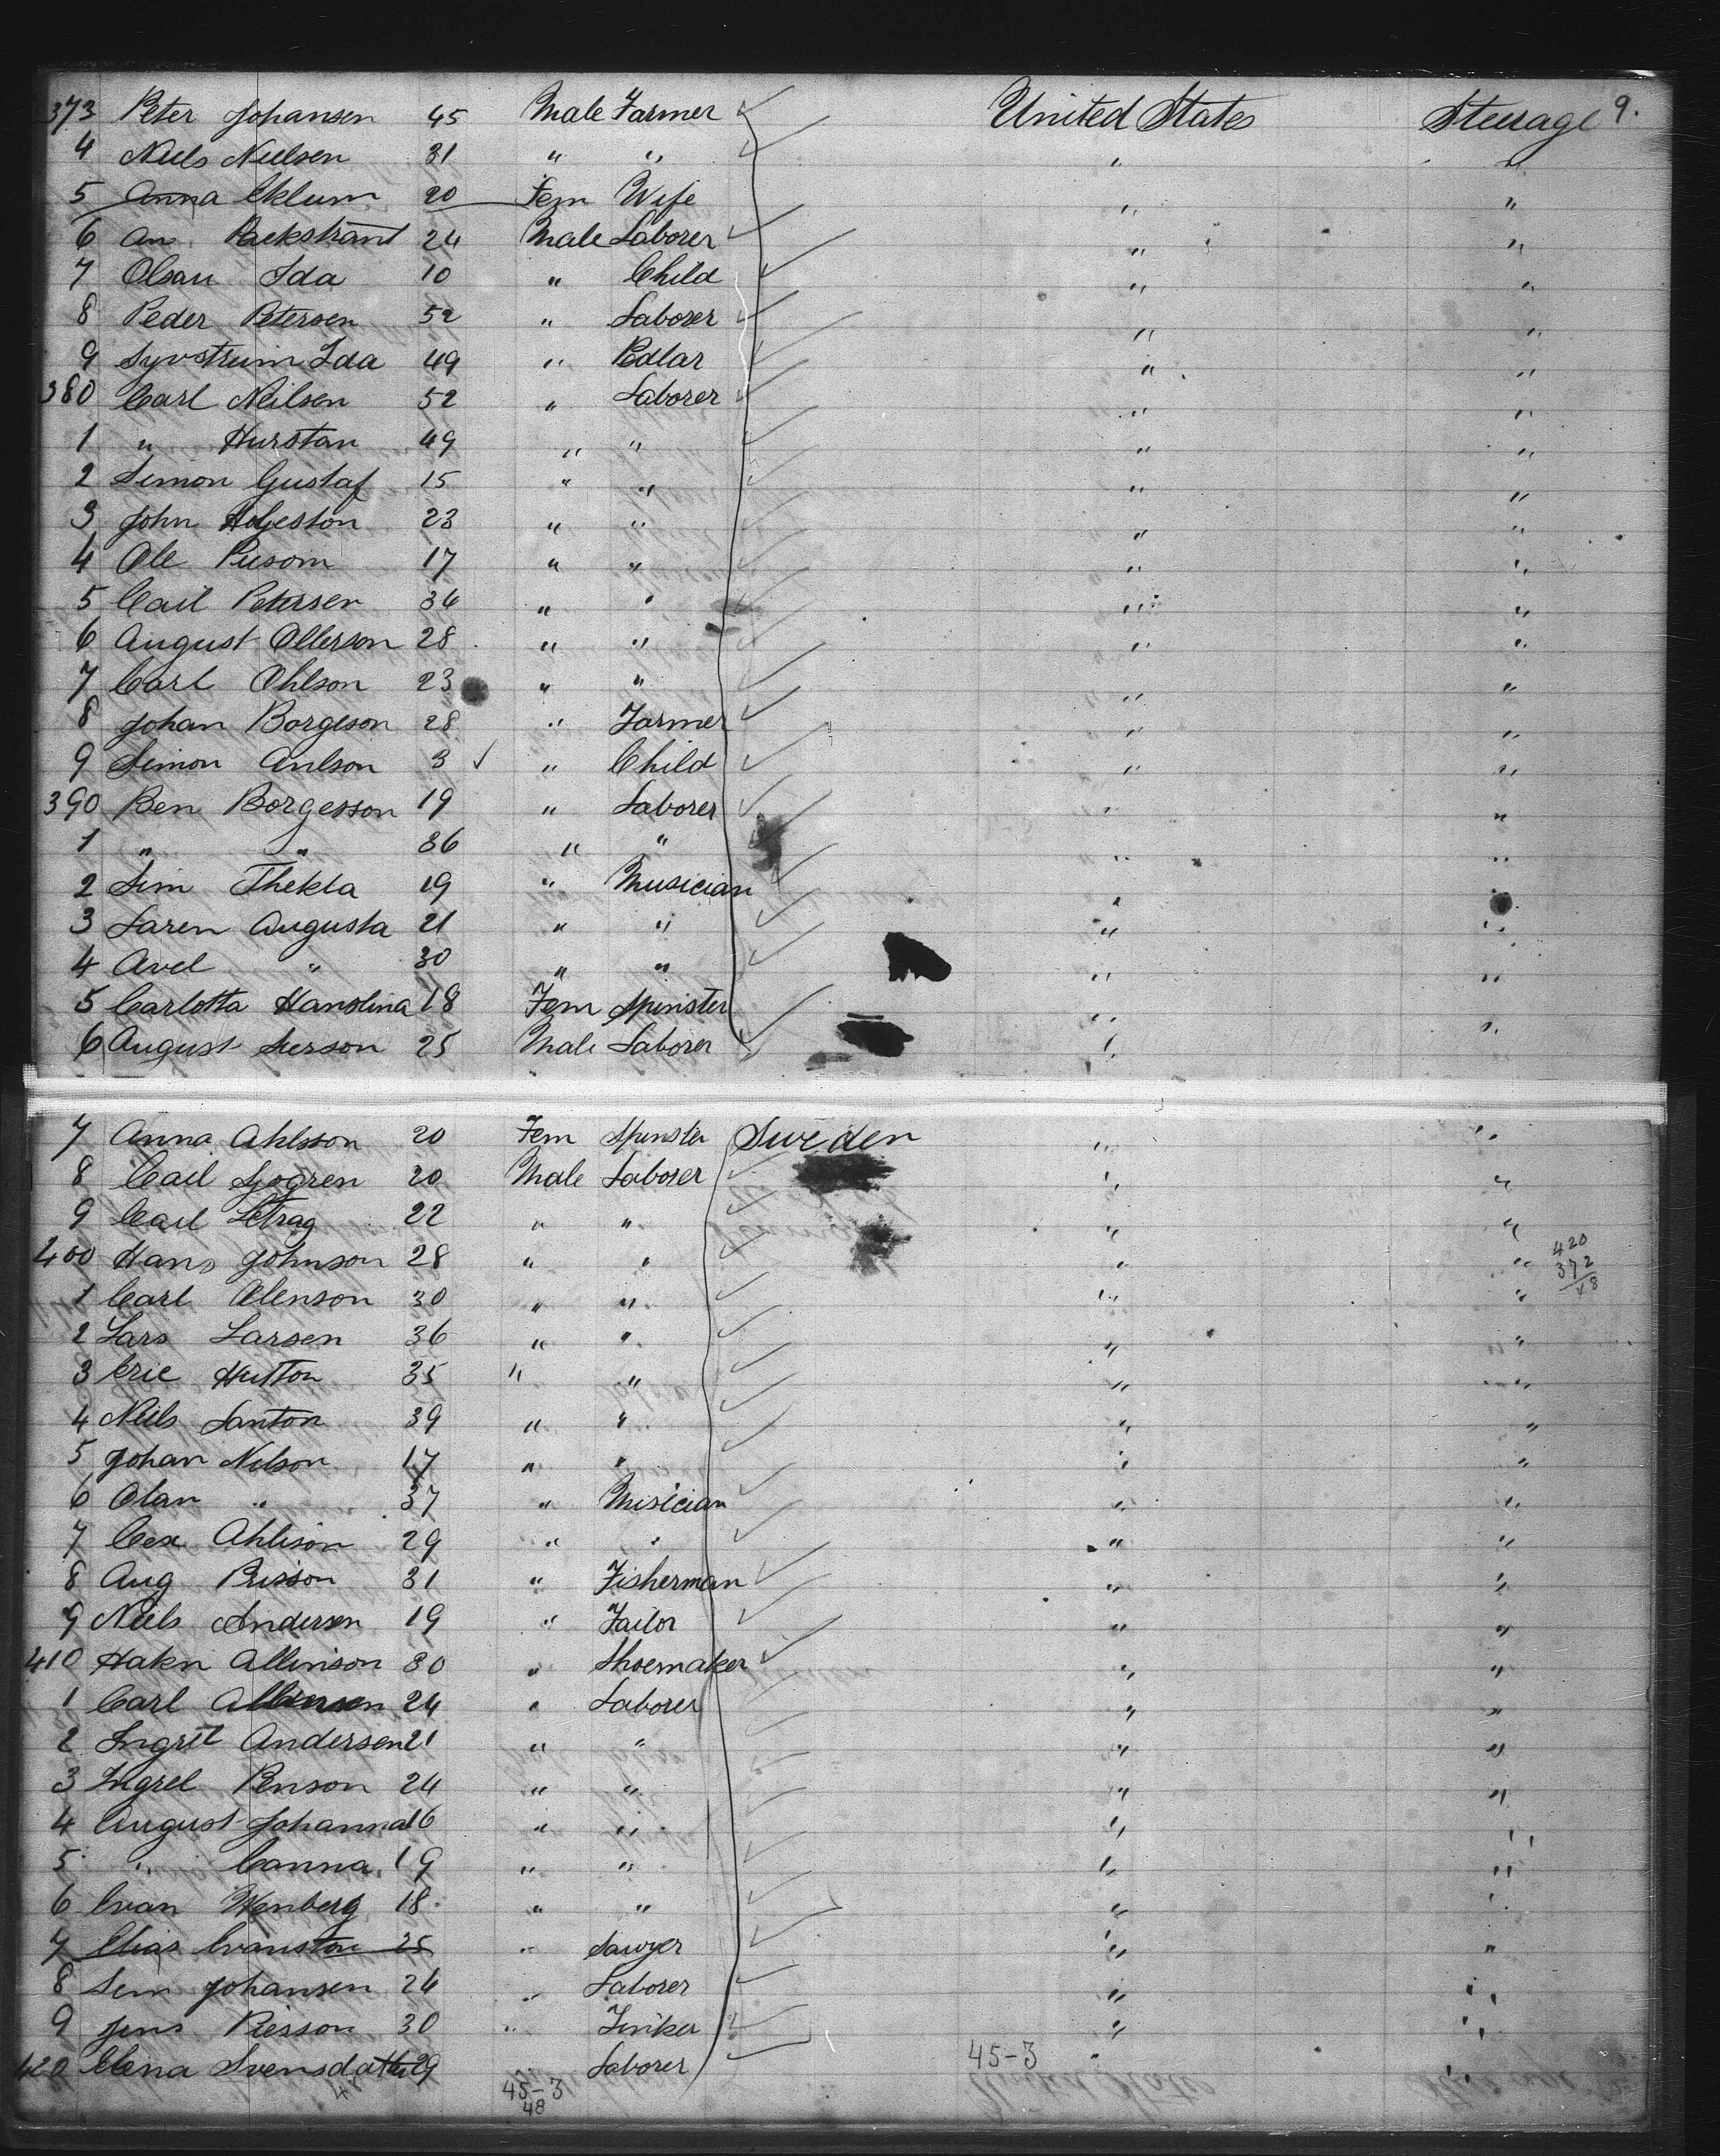 9.
373 Peter Johansen 45 Male Farmer United States Steerage
4 Niels Nielsen 31 " " " "
5 Anna Eklum 20 Fem Wife " "
6 An. Packstrant 24 Male Laborer " "
7 Olsan Ida 10 " Child " "
8 Peder Petersen 52 " Laborer " "
9 Syvstrum Ida 49 " Pedlar " "
380 Carl Neilsen 52 " Laborer " "
1 " Hurstan 49 " " " "
2 Simon Gustaf 15 " " " "
3 John 23 " " " "
4 Ole 17 " " " "
5 Carl Petersen 34 " " " "
6 August Ollerson 28 " " " "
7 Carl Ohlson 23 " " " "
8 Johan Borgeson 28 " Farmer " "
9 Simon Anlson 3 " Child " "
390 Ben Borgesson 19 " Laborer " "
1 " " 36 " " " "
2 Sim Thekla 19 " Musician " "
3 Saren Augusta 21 " " " "
4 Avel " 30 " " " "
5 Carlotta Hanolina 18 Fem Spinster " "
6 August 25 Male Laborer " "
7 Anna Ahlsson 20 Fem Spinster Sweden " "
8 Carl Sjogren 20 Male Laborer " "
9 Carl 22 " " " "
400 Hans Johnson 28 " " " "
420
372
48
1 Carl Olenson 30 " " " "
2 Lars Larsen 36 " " " "
3 Eric Hutton 35 " " " "
4 Neils Santon 39 " " " "
5 Johan Nelson 17 " " " "
6 Olan " 37 " Musician " "
7 Cex Ahlison 29 " " " "
8 Aug 31 " Fisherman " "
9 Niels Andersen 19 " Tailor " "
410 Hakn Allinson 30 " Shoemaker " "
1 Carl 24 " Laborer " "
2 Ingrit Andersen 21 " " " "
3 Ingrel Benson 24 " " " "
4 August Johanna 16 " " " "
5 " Canna 19 " " " "
6 Evan Wenberg 18 " " " "
7 Elias Evanston 25 " Sawyer " "
8 Sem Johansen 24 " Laborer " "
9 Jens Piersson 30 " Tinker " "
420 Elena Svensdatter 29 Laborer " "
48 45-3 45-3
48